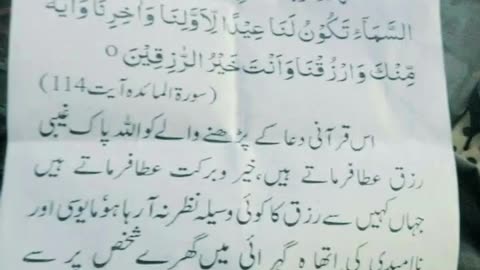 السَّمَآءِ تَكُوْنُ لَنَا عِيْدًا لِّاَوَّلِنَا وَاٰخِرِنَا وَاٰيَةً
مِّنْكَ وَارْزُقْنَا وَاَنْتَ خَيْرُ الرّٰزِقِيْنَ ○
(سورۃ المائدہ آیت 114)
اس قرآنی دعا کے پڑھنے والے کو اللہ پاک غیبی
رزق عطا فرماتے ہیں، خیر و برکت عطا فرماتے ہیں
جہاں کہیں سے رزق کا کوئی وسیلہ نظر نہ آ رہا ہو مایوسی اور
ناامیدی کی اتھاہ گہرائی میں گھرے شخص پر سے